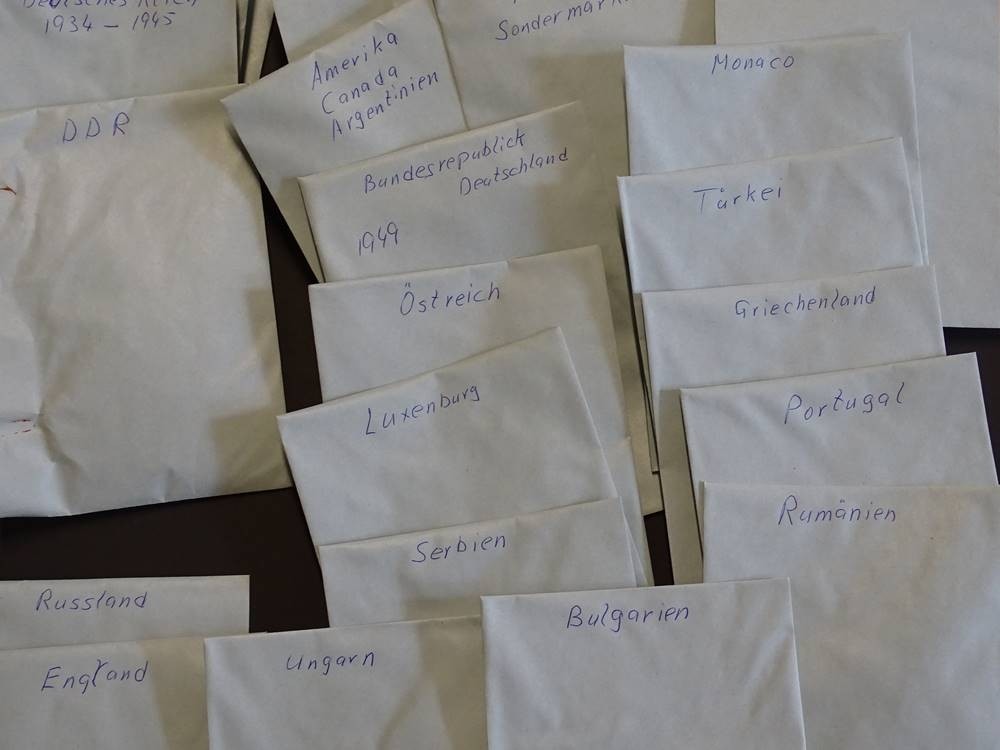 Deutsches Reich
1934 – 1945
Amerika
Canada
Argentinien
Monaco
DDR
Bundesrepublick
Deutschland
1949
Türkei
Östreich
Griechenland
Luxenburg
Portugal
Serbien
Rumänien
Russland
Bulgarien
England
Ungarn